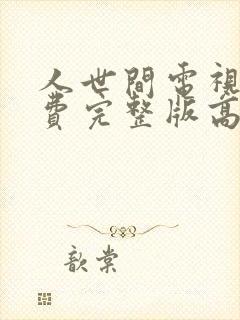 人世間電視
費完整版高
歆棠